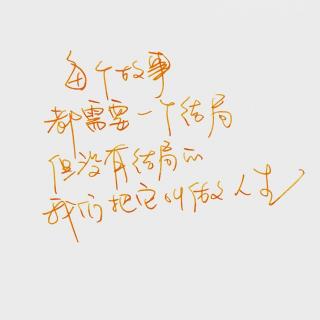 每个故事
都需要一个结局
但没有结局的
我们把它叫做人生